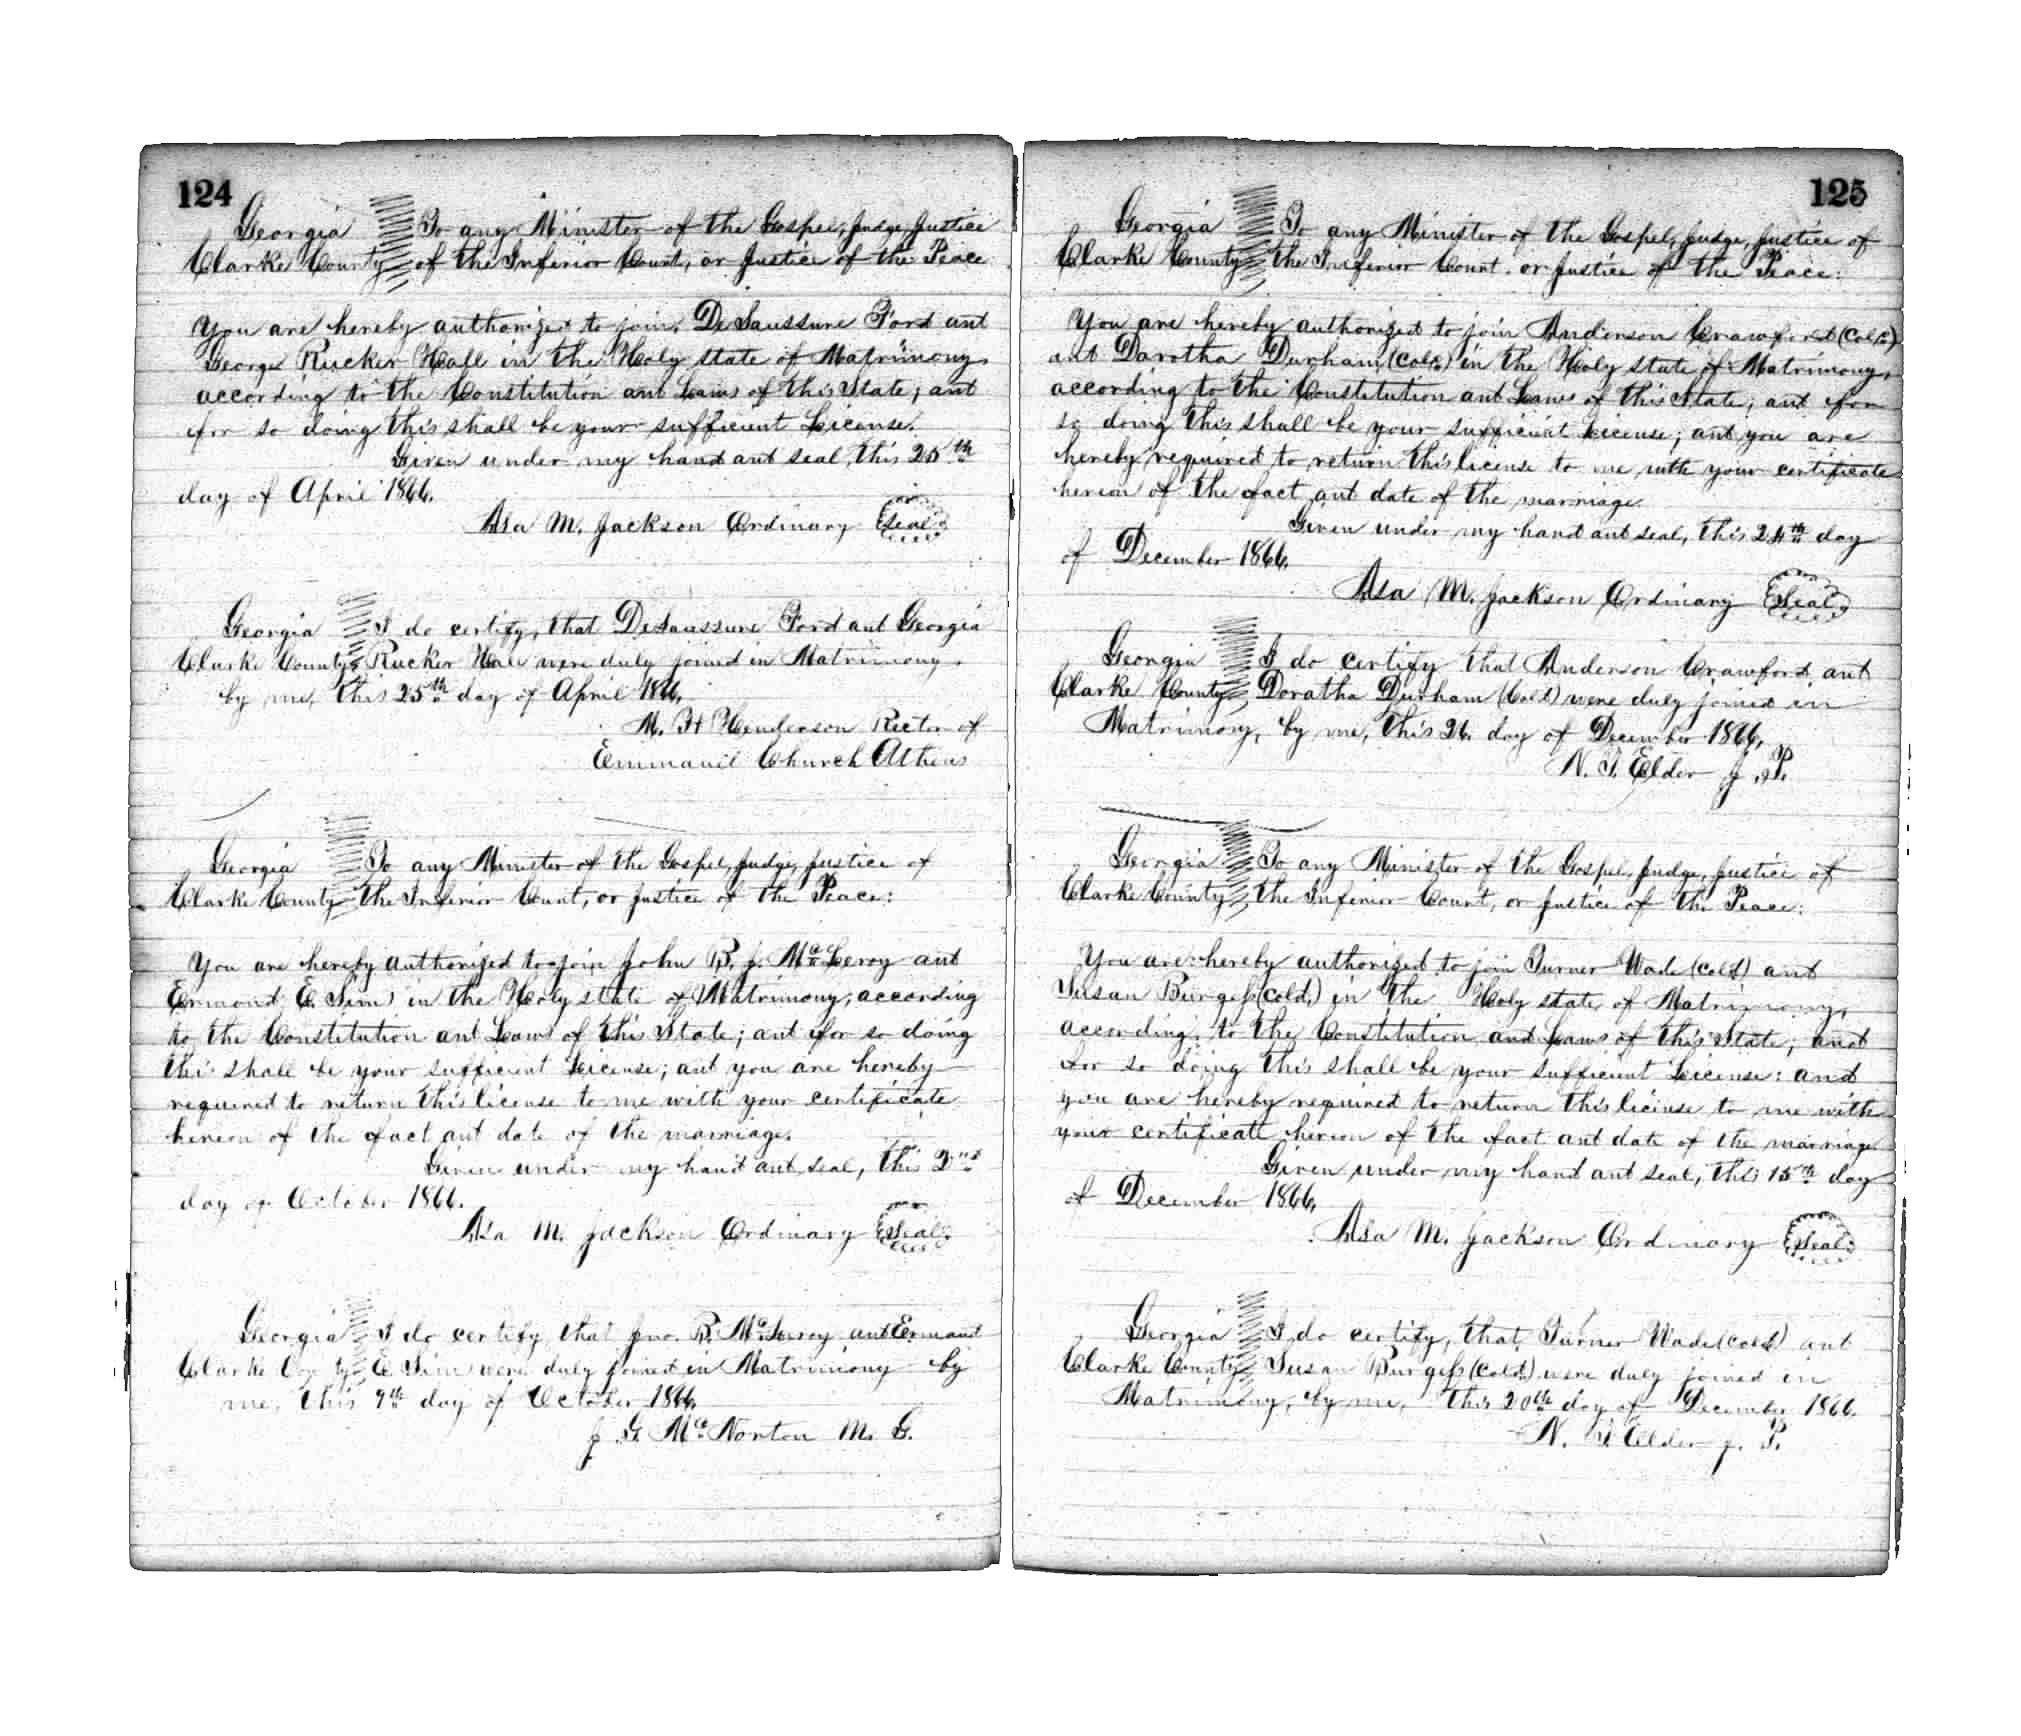 124
Georgia To any Minister of the Gospel, Judge, Justice
Clarke County of the Inferior Court, or Justice of the Peace
You are hereby authorized to join, DeSaussure Ford and
George Rucker Hall in the Holy state of Matrimony
according to the Constitution and Laws of this State; and
for so doing this shall be your sufficient License.
Given under my hand and seal, this 25th
day of April 1866.
Asa M. Jackson Ordinary Seal
Georgia I do certify, that DeSaussure Ford and Georgia
Clarke County Rucker Hall were duly joined in Matrimony
by me, this 25th day of April 1866.
M. H Henderson Rector of
Emmanuel Church Athens
Georgia To any Minister of the Gospel, Judge, Justice of
Clarke County the Inferior Court, or Justice of the Peace:
You are hereby authorized to join John R. J. McLeroy and
Ermond E. Sims in the Holy state of Matrimony, according
to the Constitution and Laws of this State; and for so doing
this shall be your sufficient License; and you are hereby
required to return this license to me with your certificate
hereon of the fact and date of the marriage.
Given under my hand and seal, this 2nd
day of October 1866.
Asa M. Jackson Ordinary Seal
Georgia I do certify, that Jno. R. McLeroy and Ermand
Clarke County E Sims were duly joined in Matrimony by
me, this 9th day of October 1866.
J. G. McNorton M. G.
125
Georgia To any Minister of the Gospel, Judge, Justice of
Clarke County the Inferior Court or Justice of the Peace:
You are hereby authorized to join Anderson Crawford (Cold)
and Darotha Durham (Cold) in the Holy state of Matrimony,
according to the Constitution and Laws of this State; and for
so doing this shall be your sufficient License; and you are
hereby required to return this license to me with your certificate
hereon of the fact and date of the marriage.
Given under my hand and seal, this 24th day
of December 1866.
Asa M. Jackson Ordinary Seal
Georgia I do certify that Anderson Crawford and
Clarke County Doratha Durham (Cold) were duly joined in
Matrimony, by me, this 26 day of December 1866,
N. T. Elder J. P.
Georgia To any Minister of the Gospel, Judge, Justice of
Clarke County the Inferior Court, or Justice of the Peace:
You are hereby authorized to join Turner Wade (Cold) and
Susan Burgess (Cold,) in the Holy state of Matrimony,
according to the Constitution and Laws of this State; and
for so doing this shall be your sufficient License: and
you are hereby required to return this license to me with
your certificate hereon of the fact and date of the marriage
Given under my hand and seal, this 15th day
of December 1866,
Asa M. Jackson Ordinary Seal
Georgia I do certify, that, Turner Wade (Cold) and
Clarke County Susan Burgess (Cold) were duly joined in
Matrimony, by me, this 20th day of December 1866.
N. T Elder J. P.